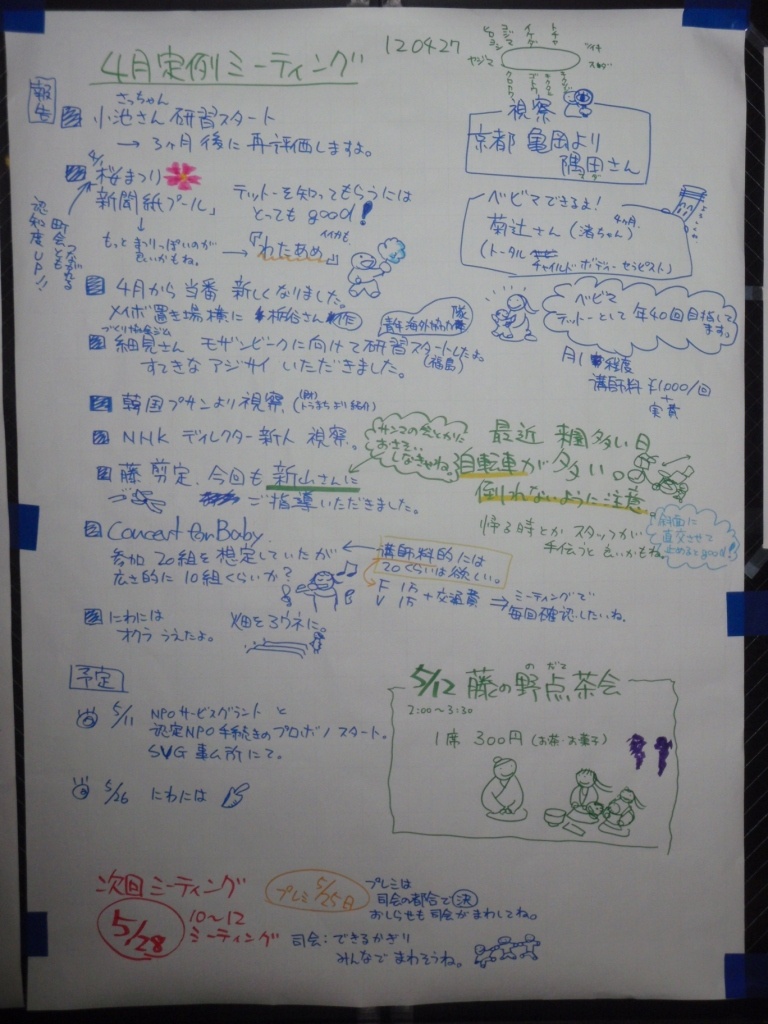 4月定例ミーティング
120427
ヤジマ
報告
さっちゃん
小池さん 研修スタート
→ 3ヶ月後に再評価しますよ。
視察
京都 亀岡より
隅田さん
桜まつり
新聞紙プール」
テットーを知ってもらうには
とっても good!
もっと まつりっぽいのが
良いかもね。
→ 「わたあめ」
認知度UP!!
町会とも
つながれる
ベビマできるよ!
菊辻さん (渚ちゃん) 4ヶ月
(トータル
チャイルド・ボディー・セラピスト)
4月から 当番 新しくなりました。
メイボ置き場横に 栃谷さん作
ベビマ
テットーとして 年40回目指して
ます。
月1 程度
講師料 ¥1,000/回
+
実費
青年海外協力隊
細見さん モザンビークに向けて研修スタートしたよ。
(福島)
すてきな アジサイ いただきました。
韓国プサンより視察
NHK ディレクター新人 視察。
藤 剪定、今回も 新山さんに
ご指導いただきました。
おさそい
しなきゃね。
最近 来園多い日
自転車が多い。
倒れないように注意。
帰る時とか スタッフが
手伝うと 良いかもね。
斜面に
直交させて
止めるとgood!
Concert for Baby.
参加 20組を想定していたが
広さ的に 10組くらいか?
講師料的には
20くらいは欲しい。
F 1万
V 1万 +交通費
⇒ ミーティングで
毎回確認したいね。
にわには
オクラ うえたよ。
畑を3ウネに。
予定
5/11 NPOサービスグラント と
認定NPO手続きのプロボノ スタート。
SVG 事ム所にて。
5/26 にわには
5/12 藤の野点茶会
のだて
2:00〜3:30
1席 300円 (お茶・お菓子)
次回ミーティング
5/28
10〜12
ミーティング
プレミ 5/25日
プレミは
司会の都合で決
おしらせも司会がまわしてね。
司会:できるかぎり
みんなで まわそうね。